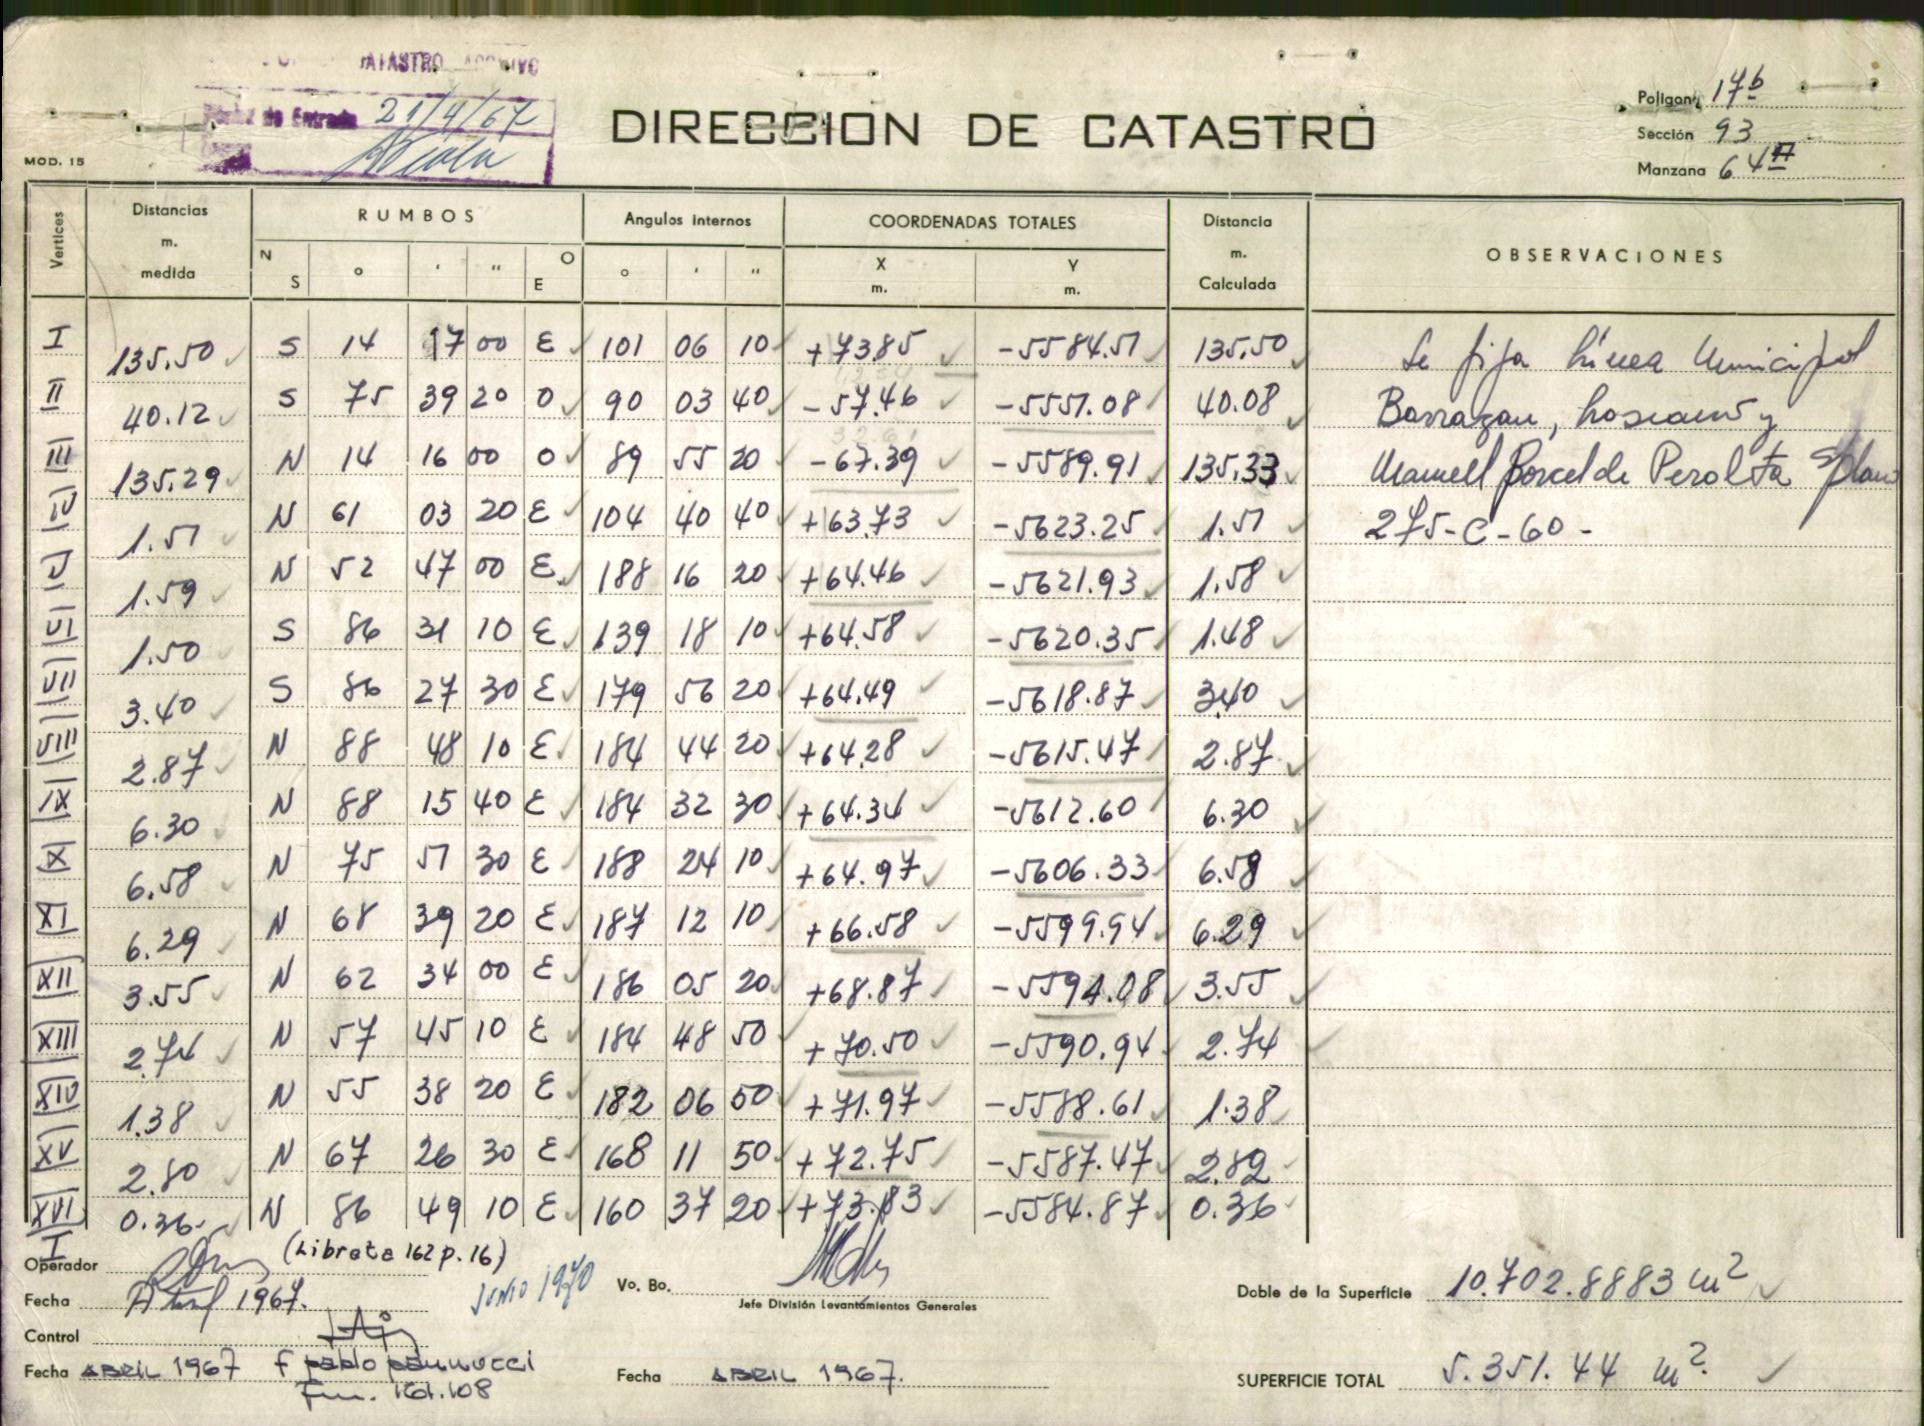 CATASTRO
Fecha de Entrada 21/4/67
DIRECCION DE CATASTRO
Poligono 17b
Sección 93
Manzana 64A
MOD. 15
Vertices Distancias m. medida RUMBOS N S ° ' " O E Angulos internos ° ' " COORDENADAS TOTALES X m. Y m. Distancia m. Calculada OBSERVACIONES
I 135.50 S 14 17 00 E 101 06 10 +73.85 -5584.51 135.50 Se fija Línea Municipal
II 40.12 S 75 39 20 O 90 03 40 -57.46 -5551.08 40.08 Barragan,
III 135.29 N 14 16 00 O 89 55 20 -67.39 -5589.91 135.33 Manuel Porcel de Peralta s/plano
IV 1.51 N 61 03 20 E 104 40 40 +63.73 -5623.25 1.51 275-C-60-
V 1.59 N 52 47 00 E 188 16 20 +64.46 -5621.93 1.58
VI 1.50 S 86 31 10 E 139 18 10 +64.58 -5620.35 1.48
VII 3.40 S 86 27 30 E 179 56 20 +64.49 -5618.87 3.40
VIII 2.87 N 88 48 10 E 184 44 20 +64.28 -5615.47 2.87
IX 6.30 N 88 15 40 E 184 32 30 +64.34 -5612.60 6.30
X 6.58 N 75 51 30 E 188 24 10 +64.97 -5606.33 6.59
XI 6.29 N 68 39 20 E 187 12 10 +66.58 -5599.94 6.29
XII 3.55 N 62 34 00 E 186 05 20 +68.87 -5594.08 3.55
XIII 2.74 N 57 45 10 E 184 48 50 +70.50 -5590.94 2.74
XIV 1.38 N 55 38 20 E 182 06 50 +71.97 -5588.61 1.38
XV 2.80 N 67 26 30 E 168 11 50 +72.75 -5587.47 2.82
XVI 0.36 N 86 49 10 E 160 37 20 +73.83 -5584.87 0.36
I
Operador (Libreta 162 p. 16)
Fecha Abril 1967. Junio 1970 Vo. Bo. Jefe División Levantamientos Generales
Doble de la Superficie 10.702.8883 m²
Control
Fecha ABRIL 1967 F pablo pannucci Fecha ABRIL 1967.
161.108
SUPERFICIE TOTAL 5.351.44 m².